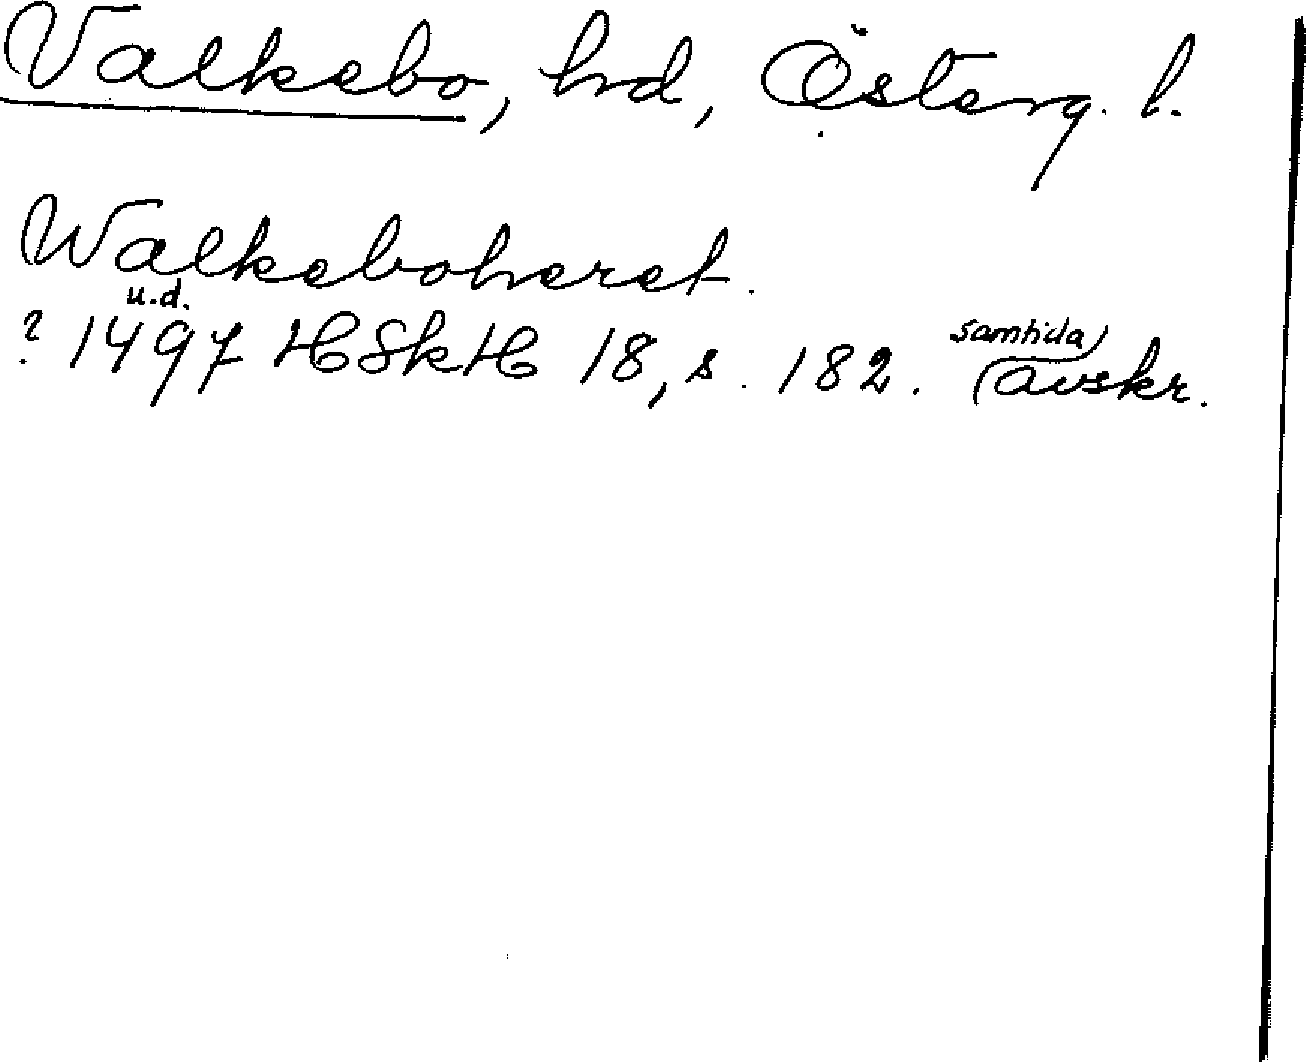 Valkebo, hd, Österg. l.
Walkeboheret.
u.d.
? 1497 HSkH 18, s. 182. (avskr.
samtida)